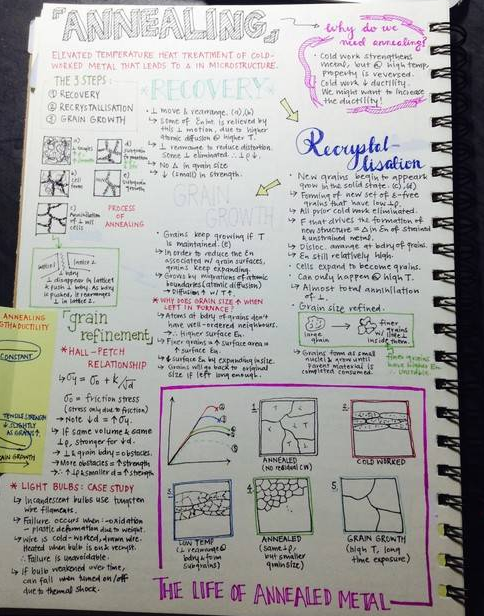 "ANNEALING"
ELEVATED TEMPERATURE HEAT TREATMENT OF COLD-
WORKED METAL THAT LEADS TO Δ IN MICROSTRUCTURE.
Why do we
need annealing?
• Cold work strengthens
metal, but @ high temp,
property is reversed.
• Cold work ↓ ductility.
We might want to increase
the ductility!
THE 3 STEPS:
① RECOVERY
② RECRYSTALLISATION
③ GRAIN GROWTH
PROCESS
OF
ANNEALING
lattice 1
lattice 2
⊥ bdry
⊥ disappear in lattice 1
& push ⊥ bdry. As bdry
is pushed, it rearranges
in lattice 2.
RECOVERY
• ⊥ move & rearrange. (a),(b)
↳ some of En int is relieved by
this ⊥ motion, due to higher
atomic diffusion @ higher T.
↳ ⊥ rearrange to reduce distortion.
Some ⊥ eliminated ∴ ⊥ρ↓.
↳ No Δ in grain size
↳ ↓ (small) in strength.
GRAIN
GROWTH
• Grains keep growing if T
is maintained. (e)
↳ In order to reduce the En
associated w/ grain surfaces,
grains keep expanding.
↳ Grows by migrations of atomic
boundaries (atomic diffusion)
↳ Diffusion ↑ w/ T↑.
* WHY DOES GRAIN SIZE ↑ WHEN
LEFT IN FURNACE?
↳ Atoms of bdry of grains don't
have well-ordered neighbours.
∴ Higher surface En.
↳ Finer grains = ↑ surface area =
↑ surface En.
↳ ↓ surface En by expanding in size.
↳ Grains will go back to original
size if left long enough.
Recrystal-
lisation
New grains begin to appear &
grow in the solid state. (c),(d)
↳ Forming of new set of ε-free
grains that have low ⊥ρ.
↳ All prior cold work eliminated.
↳ F that drives the formation of
new structure = Δ in En of strained
& unstrained metal.
↳ Disloc. arrange at bdry of grains.
↳ En still relatively high.
• Cells expand to become grains.
↳ Can only happen @ high T.
↳ Almost total annihilation
of ⊥.
• Grain size refined.
large
grain
finer
grains
w/ little ⊥
inside them.
• Grains form as small
nuclei & grow until
parent material is
completely consumed.
finer grains
have higher En
∴ unstable
ANNEALING
CONSTANT
TENSILE STRENGTH
↓ SLIGHTLY
AS GRAINS ↑.
"grain
refinement"
* HALL-PETCH
RELATIONSHIP
↳ σy = σ0 + k/√d
σ0 = friction stress
(stress only due to friction)
↳ Note ↓d = ↑σy.
↳ If same volume & same
⊥ρ, stronger for ↓d.
↳ ⊥ & grain bdry = obstacles.
↳ More obstacles = ↑ strength
↳ ∴ ↑⊥ρ & smaller d = ↑ strength
* LIGHT BULBS: CASE STUDY
↳ Incandescent bulbs use tungsten
wire filaments.
↳ Failure occurs when - oxidation
- plastic deformation due to weight.
↳ Wire is cold-worked, drawn wire.
Heated when bulb is on & recryst.
∴ Failure is unavoidable.
↳ If bulb weakened over time,
can fail when turned on/off
due to thermal shock.
1.
ANNEALED
(No residual CW)
2.
COLD WORKED
3.
LOW TEMP
(⊥ rearrange @
bdry & form
subgrains)
4.
ANNEALED
(same ⊥ρ,
but smaller
grain size)
5.
GRAIN GROWTH
(high T, long
time exposure)
THE LIFE OF ANNEALED METAL